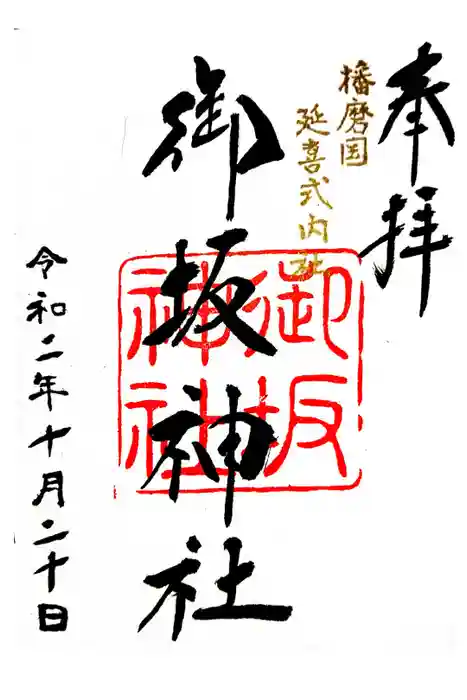 奉拝
播磨国
延喜式内社
御坂神社
御坂
神社
令和二年十月二十日